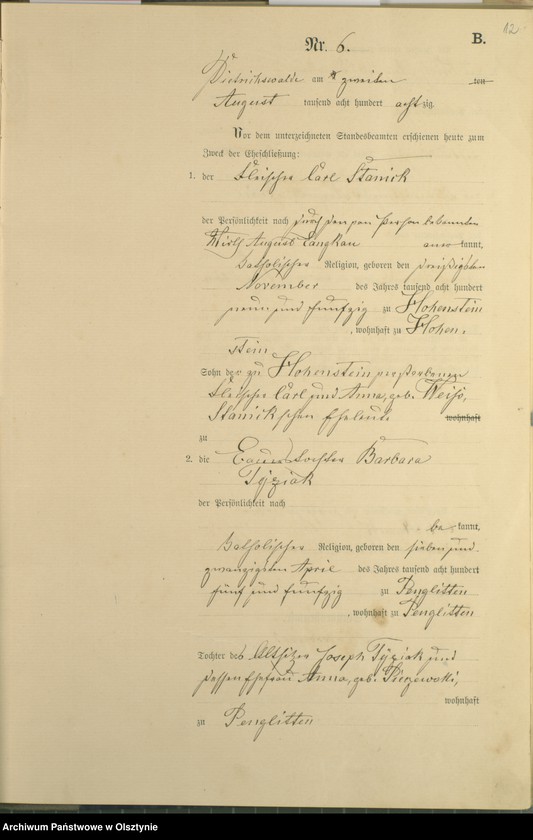 12
Nr. 6. B.
Dietrichswalde am zweiten ten
August tausend acht hundert achtzig.
Vor dem unterzeichneten Standesbeamten erschienen heute zum
Zweck der Eheschließung:
1. der Fleischer Carl Stanick
der Persönlichkeit nach durch den von Person bekannten
Wirth August Langkau anerkannt,
katholischer Religion, geboren den dreißigsten
November des Jahres tausend acht hundert
neun und fünfzig zu Hohenstein
, wohnhaft zu Hohen-
stein
Sohn der zu Hohenstein verstorbenen
Fleischer Carl und Anna, geb. Weiß,
Stanick'schen Eheleute wohnhaft
zu
2. die Tochter Barbara
Tyziak
der Persönlichkeit nach
be kannt,
katholischer Religion, geboren den sieben und
zwanzigsten April des Jahres tausend acht hundert
fünf und fünfzig zu Penglitten
, wohnhaft zu Penglitten
Tochter des Altsitzer Joseph Tyziak und
dessen Ehefrau Anna, geb.
wohnhaft
zu Penglitten
Archiwum Państwowe w Olsztynie